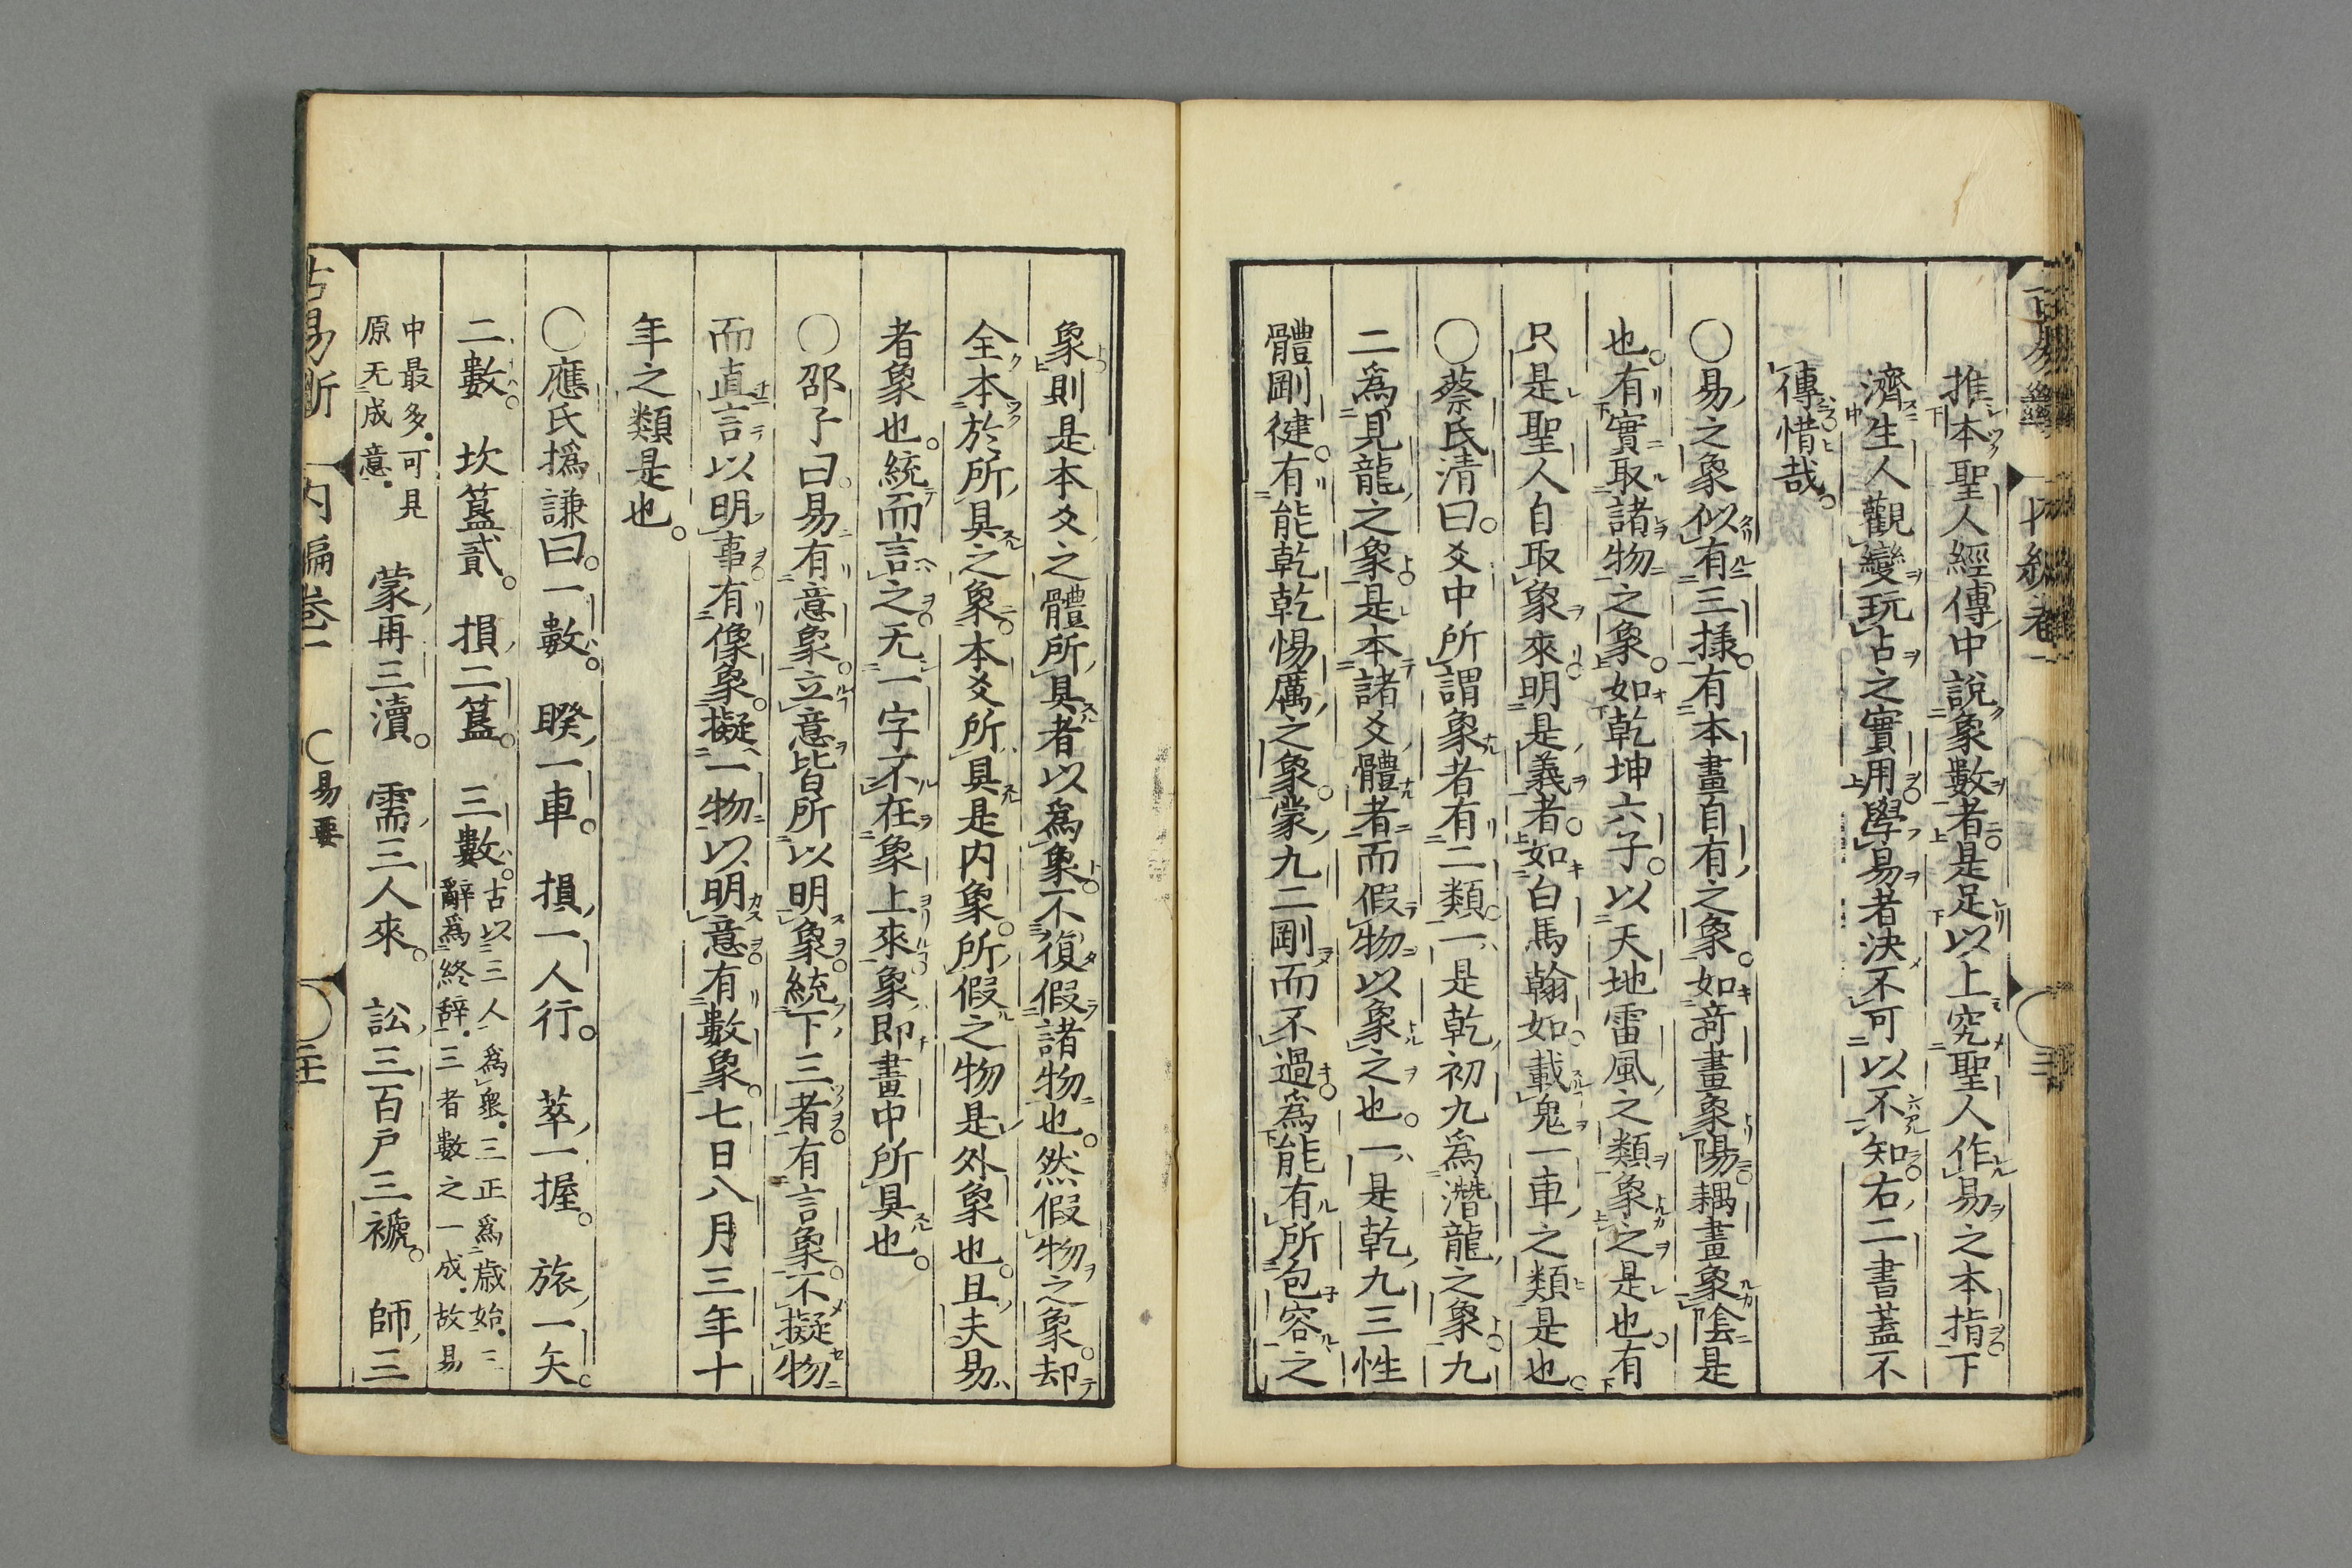 推本聖人經傳中說象數者是足以上究聖人作易之本指下
濟生人觀變玩占之實用學易者決不可以不知右二書蓋不
傳惜哉
〇易之象似有三㨾有本畫自有之象如竒畫象陽耦畫象陰是
也有實取諸物之象如乾坤六子以天地雷風之類象之是也有
只是聖人自取象來明是義者如白馬翰如載鬼一車之類是也
〇蔡氏清曰爻中所謂象者有二類一是乾初九爲潛龍之象九
二爲見龍之象是本諸爻體者而假物以象之也一是乾九三性
體剛健有能乾乾惕厲之象蒙九二剛而不過爲能有所包容之
象則是本爻之體所具者以爲象不復假諸物也然假物之象却
全本於所具之象本爻所具是内象所假之物是外象也且夫易
者象也統而言之无一字不在象上來象即畫中所具也
〇邵子曰易有意象立意皆所以明象統下三者有言象不擬物
而直言以明事有像象擬一物以明意有數象七日八月三年十
年之類是也
〇應氏撝謙曰一數　睽一車　損一人行　萃一握　旅一矢
二數　坎簋貳　損二簋　三數古以三人爲衆三正爲歳始三
辭爲終辞三者數之一成故易
中最多可見
原无成意　蒙再三瀆　需三人來　訟三百戸三褫　師三
古易斷　内編卷一　〇易要